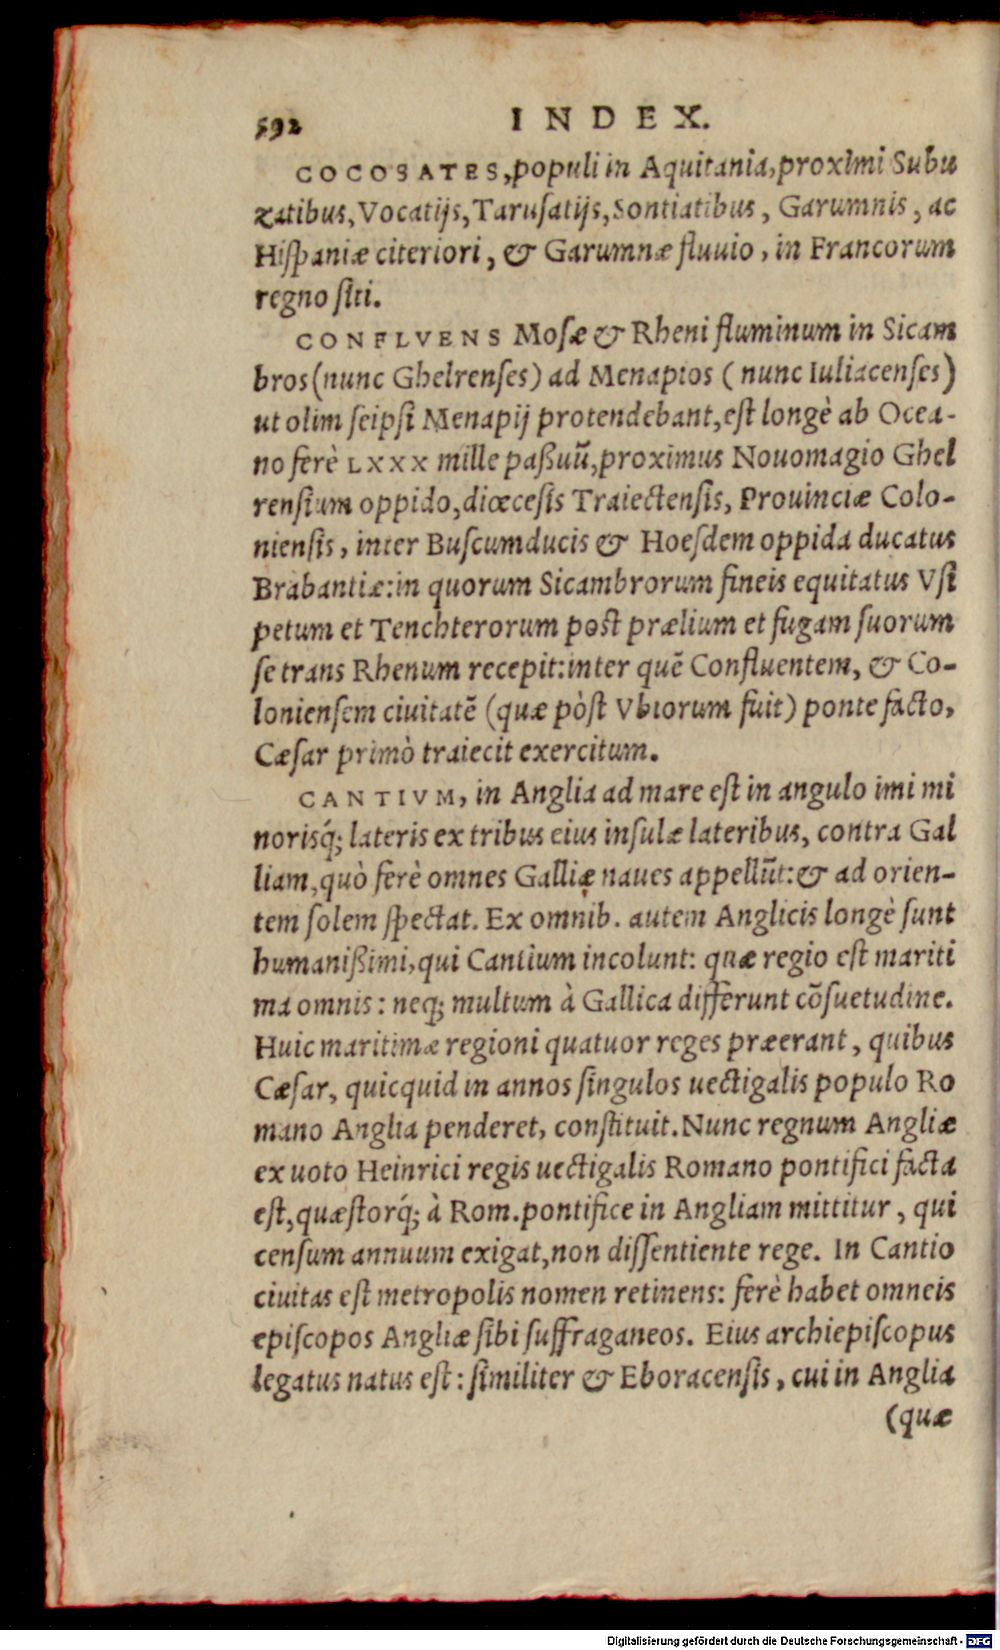 592 INDEX.
COCOSATES, populi in Aquitania, proximi Subu
zatibus, Vocatijs, Tarusatijs, Sontiatibus, Garumnis, ac
Hispaniæ citeriori, & Garumnæ fluuio, in Francorum
regno siti.
CONFLVENS Mosæ & Rheni fluminum in Sicam
bros (nunc Ghelrenses) ad Menapios (nunc Iuliacenses)
ut olim seipsi Menapij protendebant, est longè ab Ocea-
no ferè LXXX mille paßuũ, proximus Nouomagio Ghel
rensium oppido, diœcesis Traiectensis, Prouinciæ Colo-
niensis, inter Buscumducis & Hoesdem oppida ducatus
Brabantiæ: in quorum Sicambrorum fineis equitatus Vsi
petum et Tenchterorum post prælium et fugam suorum
se trans Rhenum recepit: inter quẽ Confluentem, & Co-
loniensem ciuitatẽ (quæ pòst Vbiorum fuit) ponte facto,
Cæsar primò traiecit exercitum.
CANTIVM, in Anglia ad mare est in angulo imi mi
norisq́; lateris ex tribus eius insulæ lateribus, contra Gal
liam, quò ferè omnes Gallię naues appellũt: & ad orien-
tem solem spectat. Ex omnib. autem Anglicis longè sunt
humanißimi, qui Cantium incolunt: quæ regio est mariti
ma omnis: neq; multum à Gallica differunt cõsuetudine.
Huic maritimæ regioni quatuor reges præerant, quibus
Cæsar, quicquid in annos singulos uectigalis populo Ro
mano Anglia penderet, constituit. Nunc regnum Angliæ
ex uoto Heinrici regis uectigalis Romano pontifici facta
est, quæstorq́; à Rom. pontifice in Angliam mittitur, qui
censum annuum exigat, non dissentiente rege. In Cantio
ciuitas est metropolis nomen retinens: ferè habet omneis
episcopos Angliæ sibi suffraganeos. Eius archiepiscopus
legatus natus est: similiter & Eboracensis, cui in Anglia
(quæ
Digitalisierung gefördert durch die Deutsche Forschungsgemeinschaft - DFG